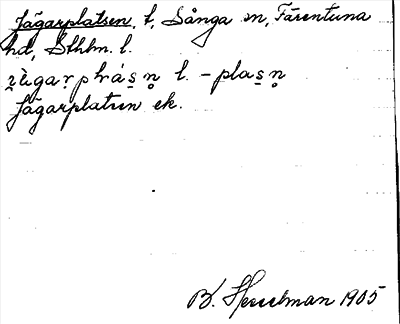 Jägarplatsen, t, Sånga sn, Färentuna
hd, Sthlm. l.
l. -plasn̥
Jägarplatsen ek.
B. Hesselman 1905